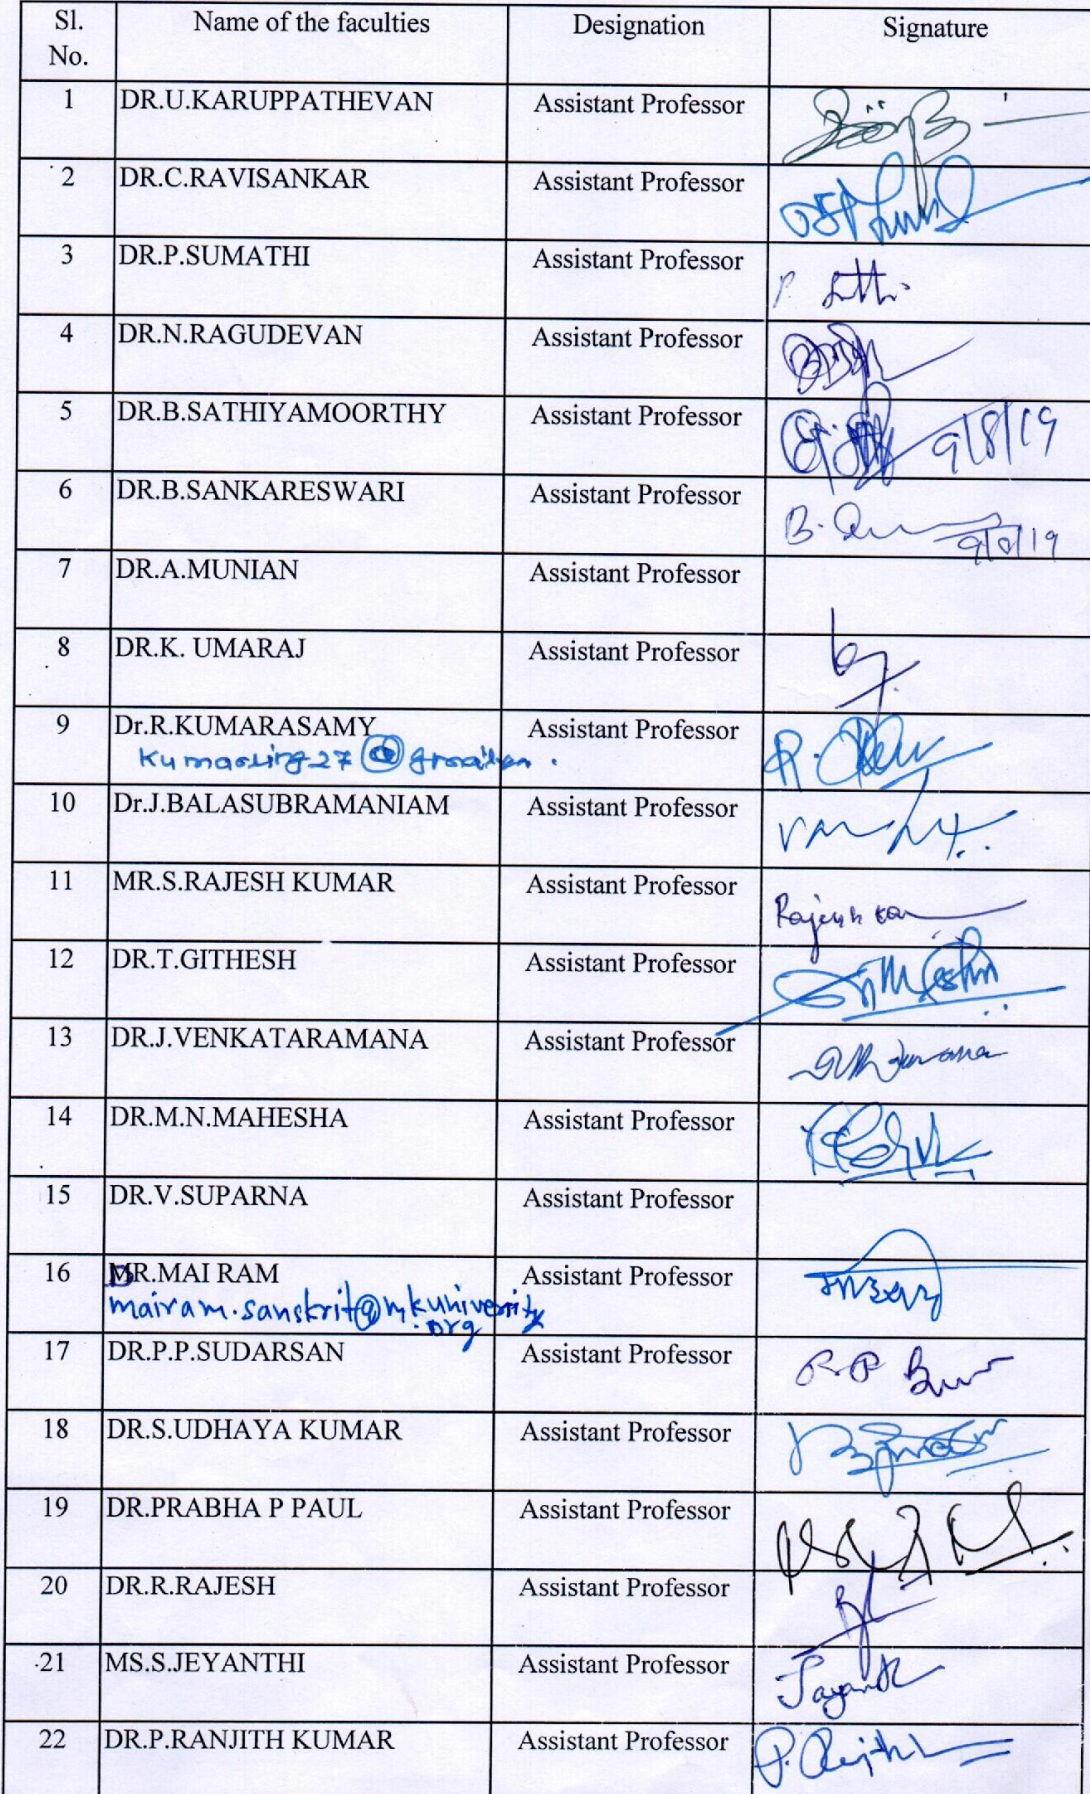 Sl. No. Name of the faculties Designation Signature
1 DR.U.KARUPPATHEVAN Assistant Professor
2 DR.C.RAVISANKAR Assistant Professor
3 DR.P.SUMATHI Assistant Professor
4 DR.N.RAGUDEVAN Assistant Professor
5 DR.B.SATHIYAMOORTHY Assistant Professor 9/8/19
6 DR.B.SANKARESWARI Assistant Professor 9/8/19
7 DR.A.MUNIAN Assistant Professor
8 DR.K. UMARAJ Assistant Professor
9 Dr.R.KUMARASAMY Assistant Professor
10 Dr.J.BALASUBRAMANIAM Assistant Professor
11 MR.S.RAJESH KUMAR Assistant Professor
12 DR.T.GITHESH Assistant Professor
13 DR.J.VENKATARAMANA Assistant Professor
14 DR.M.N.MAHESHA Assistant Professor
15 DR.V.SUPARNA Assistant Professor
16 DR.MAI RAM Assistant Professor
mairam.sanskrit@mkuniversity.org
17 DR.P.P.SUDARSAN Assistant Professor
18 DR.S.UDHAYA KUMAR Assistant Professor
19 DR.PRABHA P PAUL Assistant Professor
20 DR.R.RAJESH Assistant Professor
21 MS.S.JEYANTHI Assistant Professor
22 DR.P.RANJITH KUMAR Assistant Professor